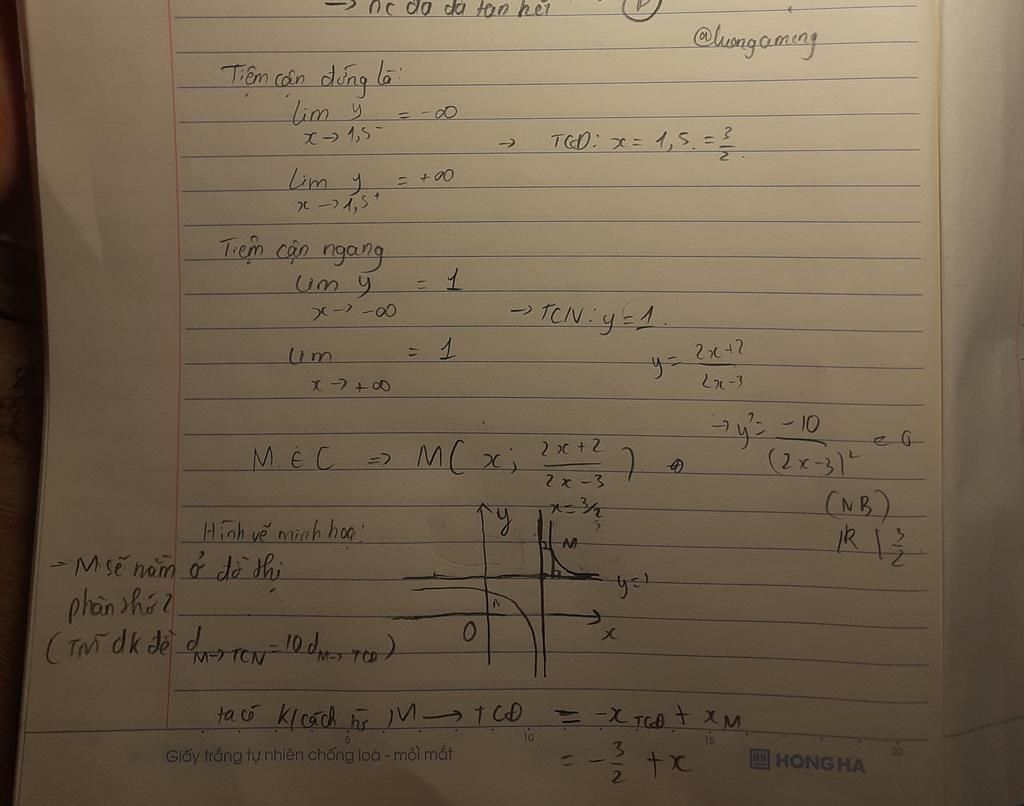 → nc đa đa tan hết
@luongameng
Tiệm cận đứng là:
lim y = -∞
x → 1,5⁻
→ TCĐ: x = 1,5 = 3/2.
lim y = +∞
x → 1,5⁺
Tiệm cận ngang
lim y = 1
x → -∞
→ TCN: y = 1.
lim = 1
x → +∞
y = (2x+2)/(2x-3)
→ y' = -10/(2x-3)²
M ∈ C ⇒ M(x; (2x+2)/(2x-3))
(NB)
R \ 3/2
Hình vẽ minh hoạ:
y
x = 3/2
M
y=1
O
x
- M sẽ nằm ở đồ thị
phần thứ 2
(TM đk đề d M→TCN = 10 d M→TCĐ)
ta có k/cách từ M → TCĐ = -x TCĐ + x M
= -3/2 + x
Giấy trắng tự nhiên chống loá - mỏi mắt
5
10
15
20
HONG HA